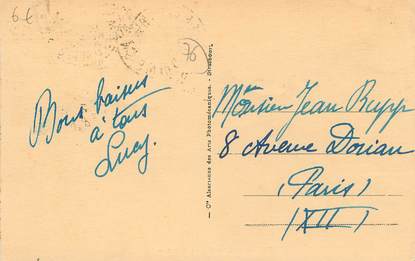 6€
76
Bons baisers
à tous
Lucy.
Cie Alsacienne des Arts Photomécaniques. - Strasbourg
Monsieur Jean Rupp
8 Avenue Dorian
(Paris)
(XII)